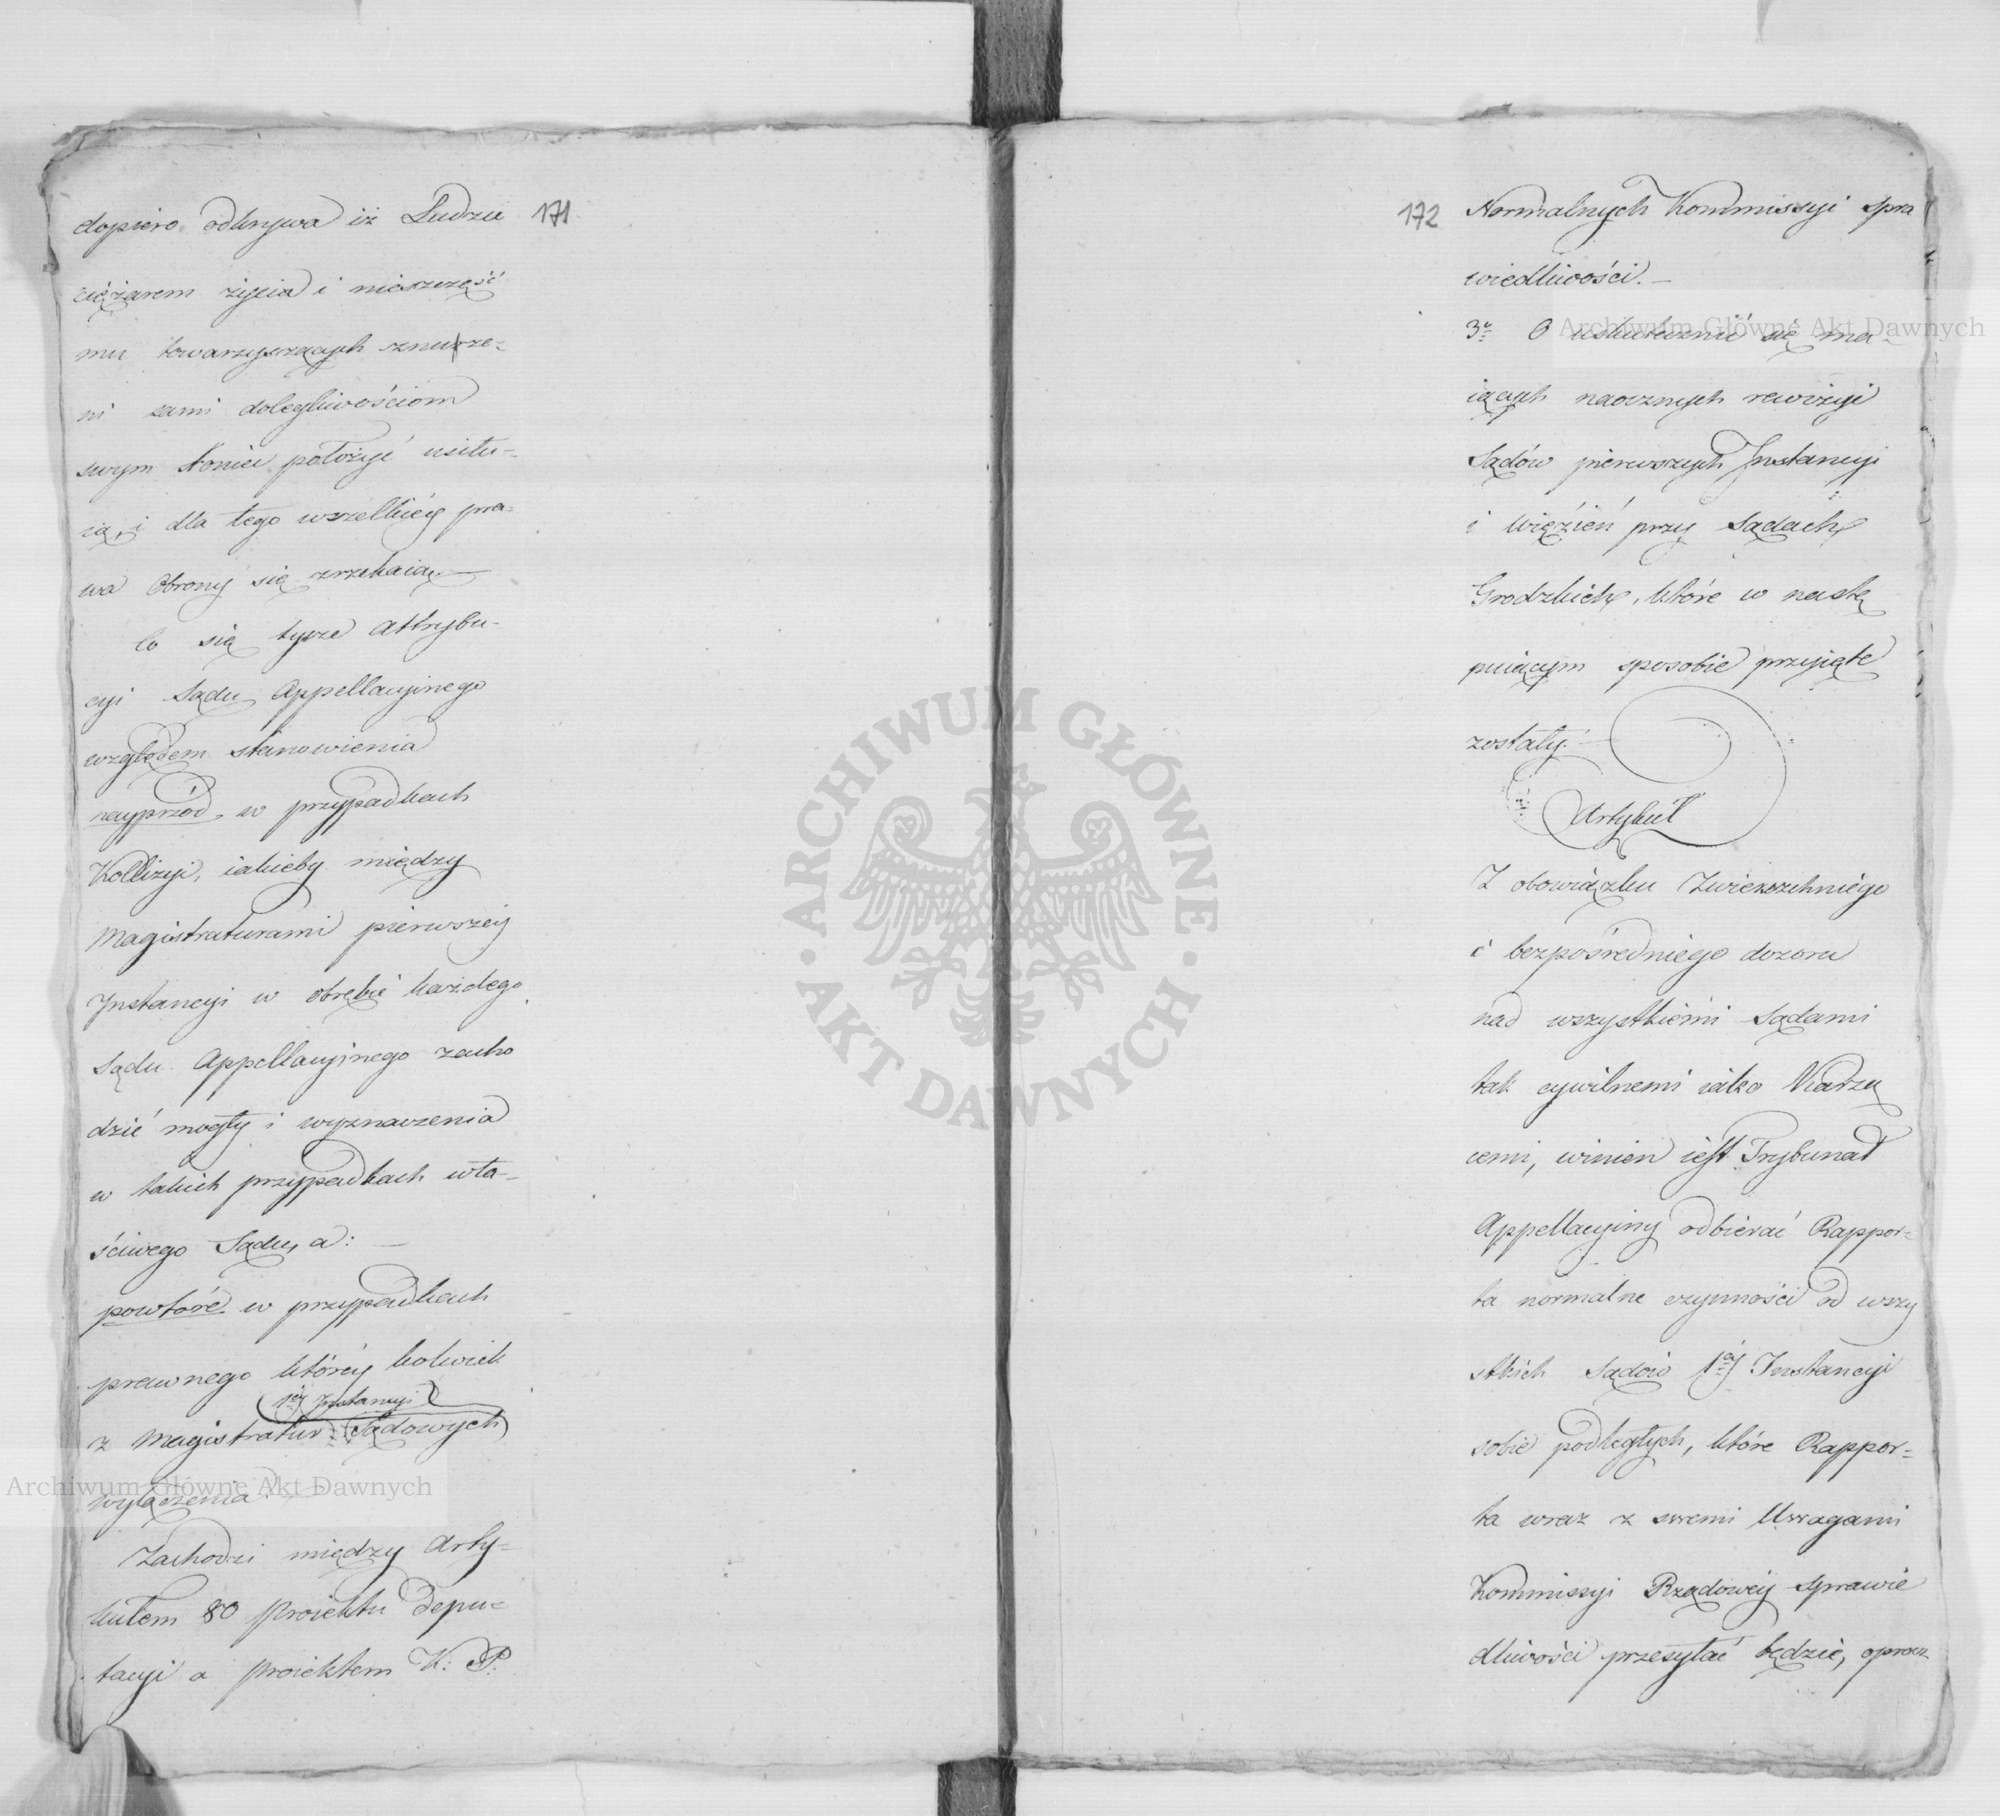 dopiero odkrywa iż Ludzie 171
ciężarem życia i nieszczęść
mu towarzyszących znurze-
ni sami dolegliwościom
swym koniec położyć usiłu-
ią, i dla tego wszelkiéy pra-
wa Obrony się zrzekaią.—
Co się tycze Attrybu-
cyi Sądu Appellacyinego
względem stanowienia
nayprzód w przypadkach
Kollizyi, iakieby między
Magistraturami pierwszéy
Instancyi w obrębie każdego
Sądu Appellacyinego zacho
dzić mogły i wyznaczenia
w takich przypadkach wła-
ściwego Sądu, a: —
powtóré w przypadkach
prawnego któréy kolwiek
1éy Instancyi
z Magistratur (Sądowych)
wyłączenia. —
Zachodzi między Arty-
kułem 80 Proiektu Depu-
tacyi a Proiektem K: P:
172 Normalnych Kommissyi Spra
wiedliwości.—
3e O uskutecznić się ma-
iących naocznych rewizyi
Sądów pierwszych Instancyi
i więzień przy Sądach
Grodzkich, które w nastę
puiącym sposobie przyięte
zostały: —
Artykuł
Z obowiązku Zwierzchniego
i bezpośredniego dozoru
nad wszystkiémi Sądami
tak cywilnemi iako Karzą
cemi, winien iest Trybunał
Appellacyiny odbierać Rappor-
ta normalne czynności od wszy
stkich Sądów 1éy Instancyi
sobie podległych, które Rappor-
ta wraz z swemi Uwagami
Kommissyi Rządowéy Sprawie
dliwości przesyłać będzie, oprócz
Archiwum Główne Akt Dawnych
Archiwum Główne Akt Dawnych
ARCHIWUM GŁÓWNE · AKT DAWNYCH ·